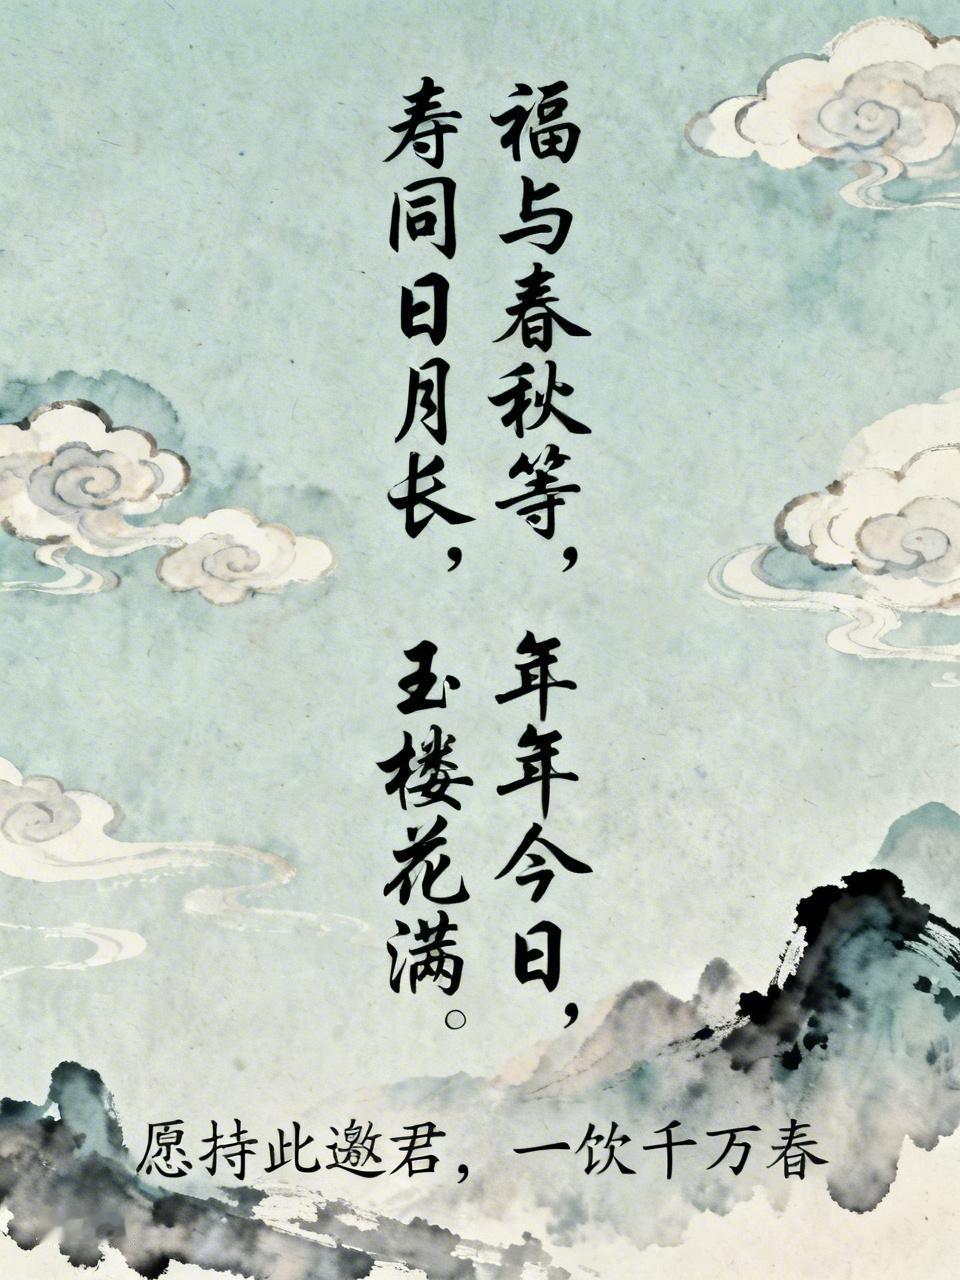 福与春秋等，年年今日，
寿同日月长，玉楼花满。
愿持此邀君，一饮千万春